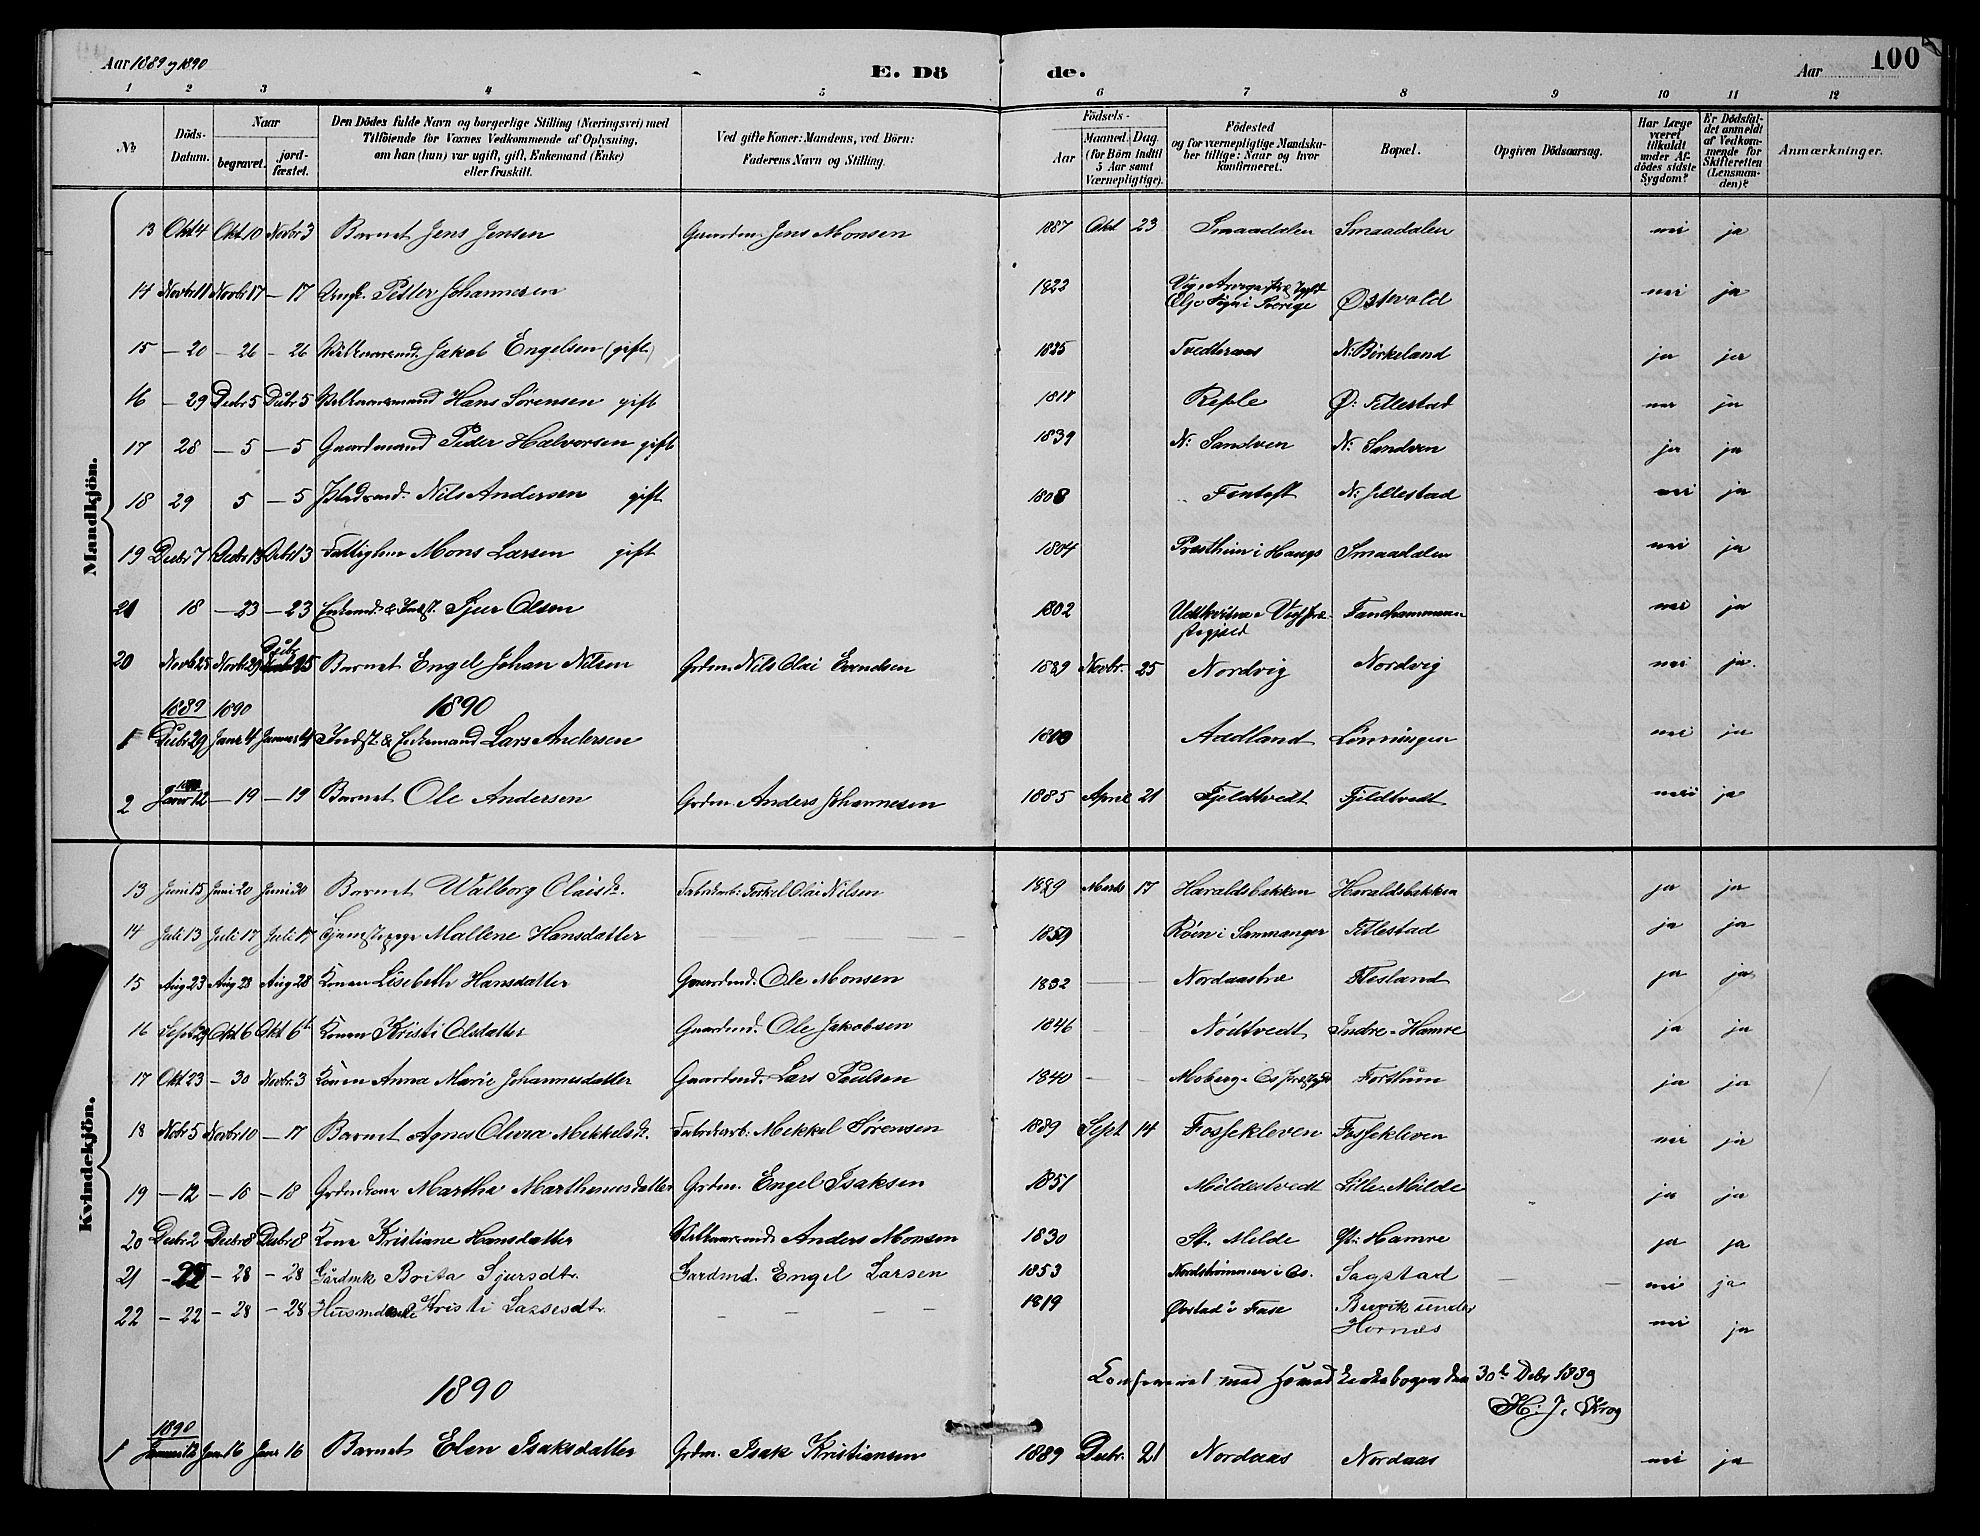 Aar 1889 & 1890
E. Dö de.
Aar
100
1 2 3 4 5 6 7 8 9 10 11 12
No.
Döds-Datum.
Naar
begravet.
jord-fæstet.
Den Dödes fulde Navn og borgerlige Stilling (Næringsvei) med Tilföiende for Voxnes Vedkommende af Oplysning, om han (hun) var ugift, gift, Enkemand (Enke) eller fraskilt.
Ved gifte Koner: Mandens, ved Börn: Faderens Navn og Stilling.
Födsels-
Aar
Maaned. Dag.
(for Börn indtil 5 Aar samt Værnepligtige).
Födested og for værnepligtige Mandskaber tillige: Naar og hvor konfirmeret.
Bopæl.
Opgiven Dödsaarsag.
Har Læge været tilkaldt under Afdödes sidste Sygdom?
Er Dödsfaldet anmeldt af Vedkommende for Skifteretten (Lensmanden)?
Anmærkninger.
Mandkjön.
13 Okt 4 Okt 10 Novbr 3 Barnet Jens Jensen Gaardm. Jens Monsen 1887 Okt 23 Smaadalen Smaadalen nei ja
14 Novbr 11 Novbr 17 — 17 Ungk. Petter Johannesen 1822 Sogn i Sverige Østevold nei ja
15 — 20 — 26 — 26 Jakob Engelsen (gift) 1825 Tvedteraas N: Birkeland ja ja
16 — 29 Decbr 5 Decbr 5 Hans Sørensen gift Ø: Titlestad nei ja
17 28 — 5 — 5 Gaardmand Peder Halvorsen gift 1839 N: Sandven N: Sandven ja ja
18 29 5 — 5 Nils Andersen gift 1808 Fentoft N: Titlestad nei ja
19 Decbr 7 Decbr 13 Decbr 13 Fattiglem Mons Larsen gift 1804 Smaadalen nei ja
21 18 — 23 — 23 Enkemd. & Indst. Sjur Olsen 1802 Fanehammeren nei ja
20 Novbr 25 Novbr 29 15 Barnet Engel Johan Nilsen Grdm. Nils Olai Evendsen 1889 Novbr. 25 Nordvig Nordvig nei ja.
1889 1890 1890
1 Decbr 29 Janr 4 Januar 4 Indst. & Enkemand Lars Andersen Aadland Lønningen nei ja
2 Janr 12 — 19 — 19 Barnet Ole Andersen Grdm. Anders Johannesen 1885 April 21 Fjeldtvedt Fjeldtvedt nei ja
Kvindekjön.
13 Juni 15 Juni 20 Juni 20 Barnet Walborg Olaisdt. Fabrikarb: Torkel Olai Nilsen 1889 Marts 17 Haraldsbakken Haraldsbakken ja ja
14 Juli 13 Juli 17 Juli 17 Tjenstepige Mallene Hansdatter 1859 Røen i Sammanger Titlestad ja ja
15 Aug 23 Aug 28 Aug 28 Konen Lisebeth Hansdatter Gaardmd. Ole Monsen 1832 — — Nordaastræ Flesland ja ja
16 Sept 29 Okt 6 Okt 6 Konen Kristi Olsdatter Gaardmd. Ole Jakobsen 1846 — — Nödtvedt Indre-Hamre ja ja
17 Okt 23 — 30 Novbr. 3 Konen Anna Marie Johannesdatter Gaardmd. Lars Poulsen 1840 — — Moberg i Os Fortum ja ja
18 Nobr 5 Novbr 10 — 17 Barnet Agnes Olivia Mikkelsdt. Fabrikarb. Mikkel Sørensen 1889 Sept 14 Fossekleven Fossekleven nei ja
19 — 12 — 16 — 18 Grdmkone Martha Marthinusdatter Grdm. Engel Isaksen 1851 Mildestvedt Lille Milde ja ja
20 Decbr 2 Decbr 8 Decbr 8 Kone Kristiane Hansdatter Anders Monsen 1830 St. Milde Hamre ja ja
21 — 28 — 28 Gårdmk Brita Sjursdtr. Gardmd. Engel Larsen 1853 Nordstrømmen i Os. Sagstad nei ja
22 — 22 — 28 — 28 Kristi Lassesdtr. 1819 Øvstad i Fuse Buvik under Hornæs nei ja
Konfereret med Hovedkirkebogen den 30te Debr 1889
H. J. Krog
1890
1890
1 Januar 12 Janr 16 Janr 16 Barnet Elen Isaksdatter Grdm. Isak Kristiansen 1889 Decbr. 21 Nordaas Nordaas nei ja